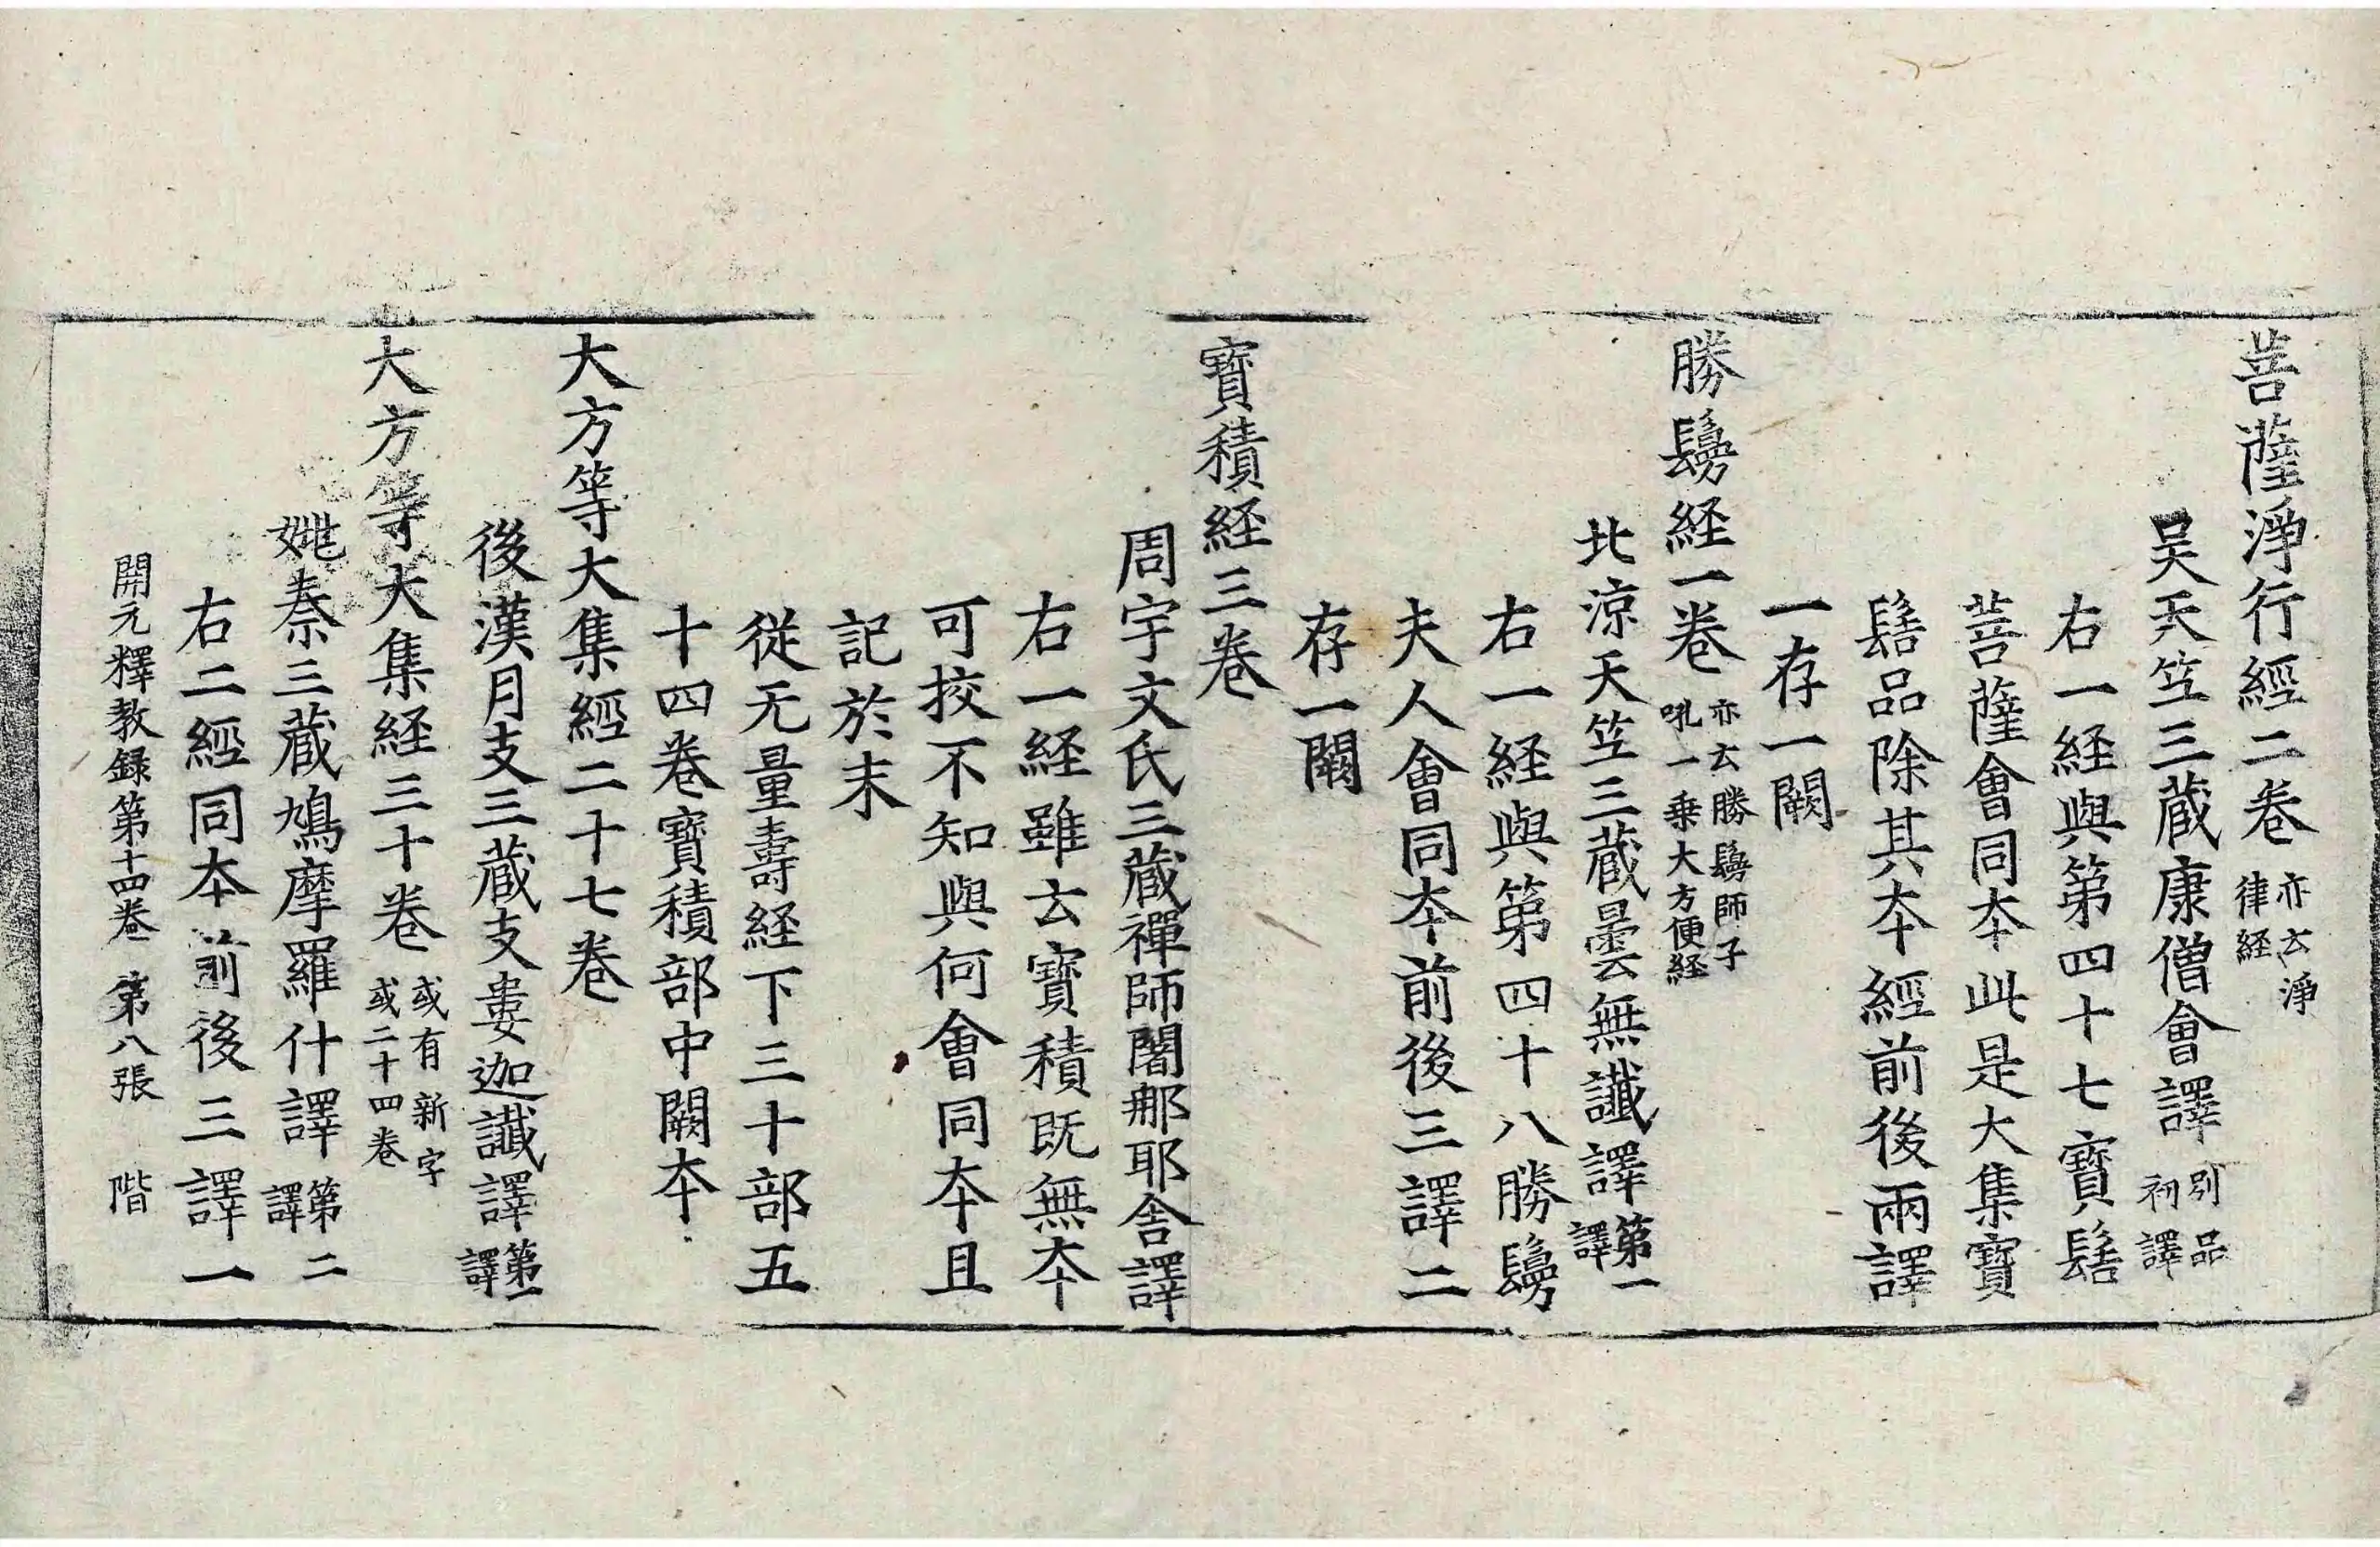 菩薩淨行經二卷亦云淨律経
吴天竺三藏康僧會譯別品初譯
右一経與第四十七寳髻
菩薩會同夲此是大集寳
髻品除其夲經前後兩譯
一存一闕
勝鬘経一卷亦云勝鬘師子吼一乗大方便経
北涼天竺三藏曇無讖譯第一譯
右一経與第四十八勝鬘
夫人會同夲前後三譯二
存一闕
寳積経三卷
周宇文氏三藏禪師闍那耶舍譯
右一経雖云寳積既無夲
可挍不知與何會同夲且
記於末
從无量壽経下三十部五
十四卷寳積部中闕夲
大方等大集經二十七卷
後漢月支三藏支婁迦讖譯第一譯
大方等大集経三十卷或有新字或二十四卷
姚秦三藏鳩摩羅什譯第二譯
右二經同夲前後三譯一
開元釋教録第十四卷 第八張 階